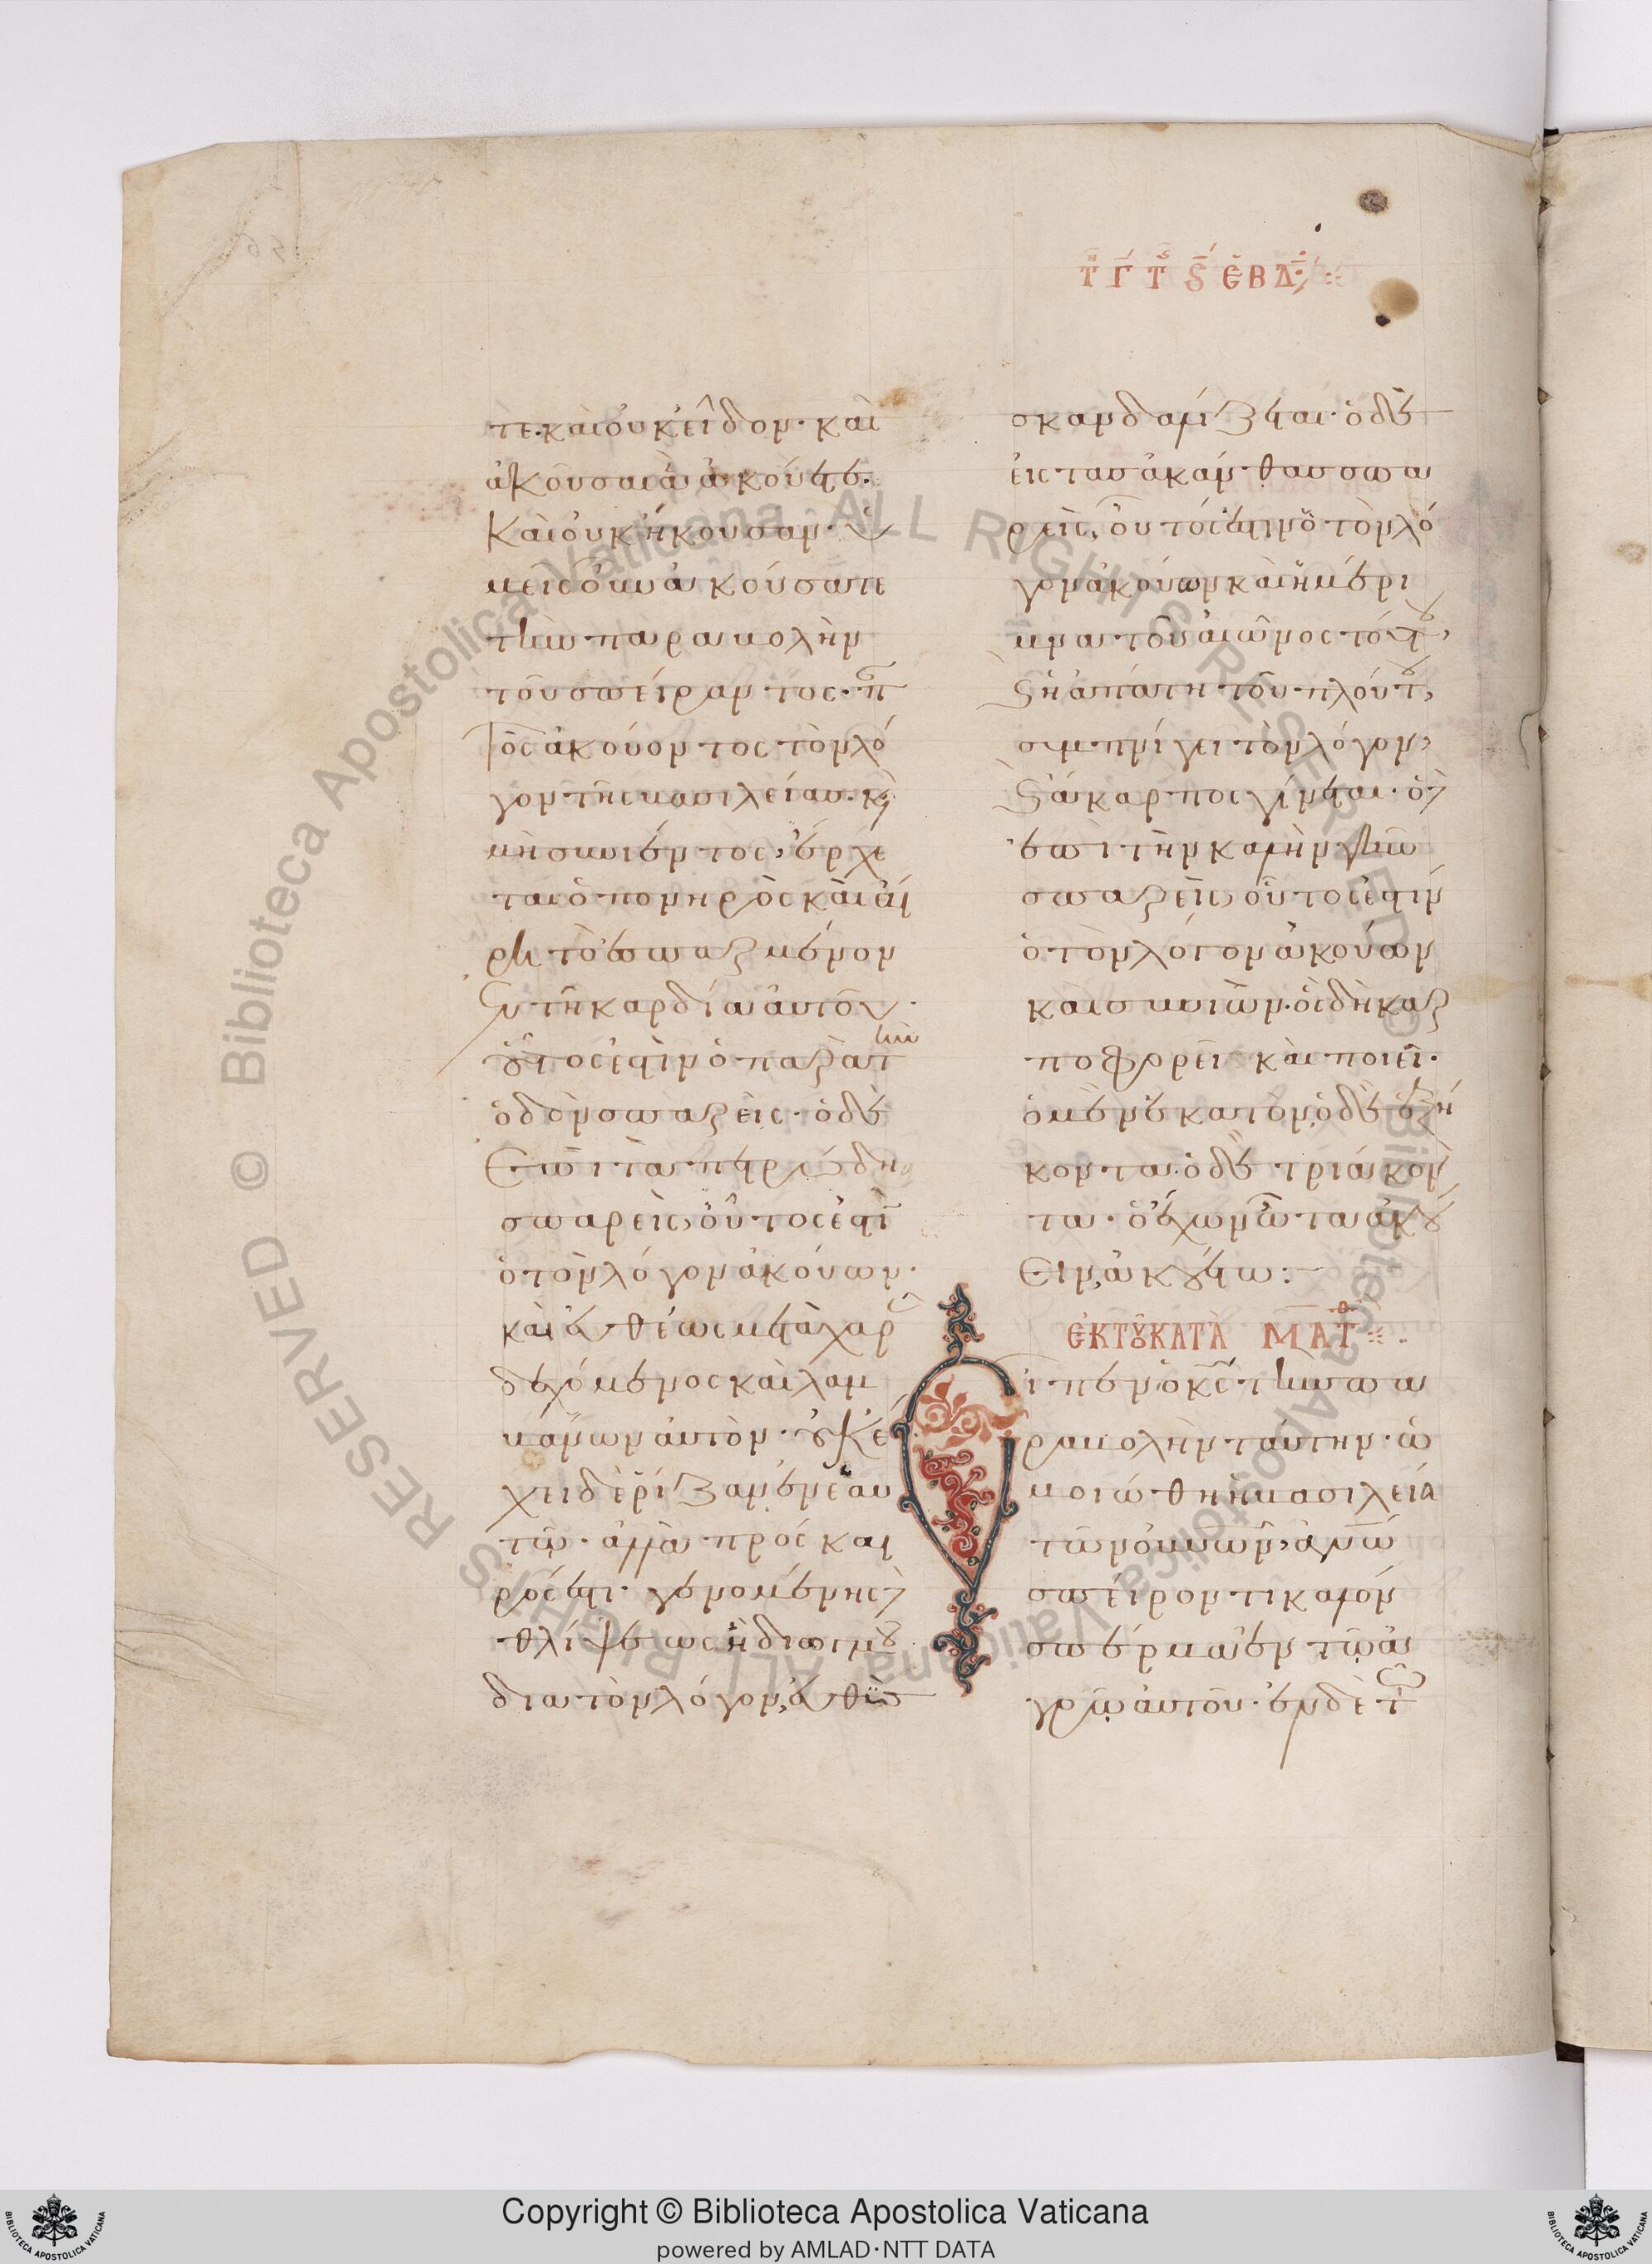 τῇ γ̅ τῆς ς̅ ἑβδ
τε· καὶ οὐκ εἶδον· καὶ
ἀκοῦσαι ἃ ἀκούετε·
καὶ οὐκ ἤκουσαν· ὑ
μεῖς οὖν ἀκούσατε
τὴν παραβολὴν
τοῦ σπείραντος· παν
τὸς ἀκούοντος τὸν λό
γον τῆς βασιλείας· καὶ
μὴ συνιέντος, ἔρχε
ται ὁ πονηρὸς καὶ αἴ
ρει τὸ ἐσπαρμένον
ἐν τῇ καρδίᾳ αὐτοῦ·
οὗτός ἐστιν ὁ παρὰ τὴν
ὁδὸν σπαρείς· ὁ δὲ
ἐπὶ τὰ πετρώδη
σπαρεὶς, οὗτός ἐστιν
ὁ τὸν λόγον ἀκούων·
καὶ εὐθέως μετὰ χαρᾶς
δεχόμενος καὶ λαμ
βάνων αὐτὸν· οὐκ ἔ
χει δὲ ῥίζαν ἐν ἑαυ
τῷ· ἀλλὰ πρόσκαι
ρός ἐστι· γενομένης δὲ
θλίψεως ἢ διωγμοῦ
διὰ τὸν λόγον, εὐθὺς
σκανδαλίζεται· ὁ δὲ
εἰς τὰς ἀκάνθας σπα
ρεὶς, οὗτός ἐστιν ὁ τὸν λό
γον ἀκούων καὶ ἡ μέρι
μνα τοῦ αἰῶνος τούτου,
καὶ ἡ ἀπάτη τοῦ πλούτου,
συμπνίγει τὸν λόγον,
καὶ ἄκαρπος γίνεται· ὁ δὲ
ἐπὶ τὴν καλὴν γῆν
σπαρεὶς, οὗτός ἐστιν
ὁ τὸν λόγον ἀκούων
καὶ συνιὼν· ὃς δὴ καρ
ποφορεῖ καὶ ποιεῖ·
ὁ μὲν ἑκατόν, ὁ δὲ ἑξή
κοντα· ὁ δὲ τριάκον
τα· ὁ ἔχων ὦτα ἀκού
ειν, ἀκουέτω:
ἐκ τοῦ κατὰ Ματθ
Εἶπεν ὁ κς̅ τὴν πα
ραβολὴν ταύτην· ὡ
μοιώθη ἡ βασιλεία
τῶν οὐνῶν, ἀνῶ
σπείροντι καλὸν
σπέρμα ἐν τῷ ἀ
γρῷ αὐτοῦ· ἐν δὲ τῷ
Copyright © Biblioteca Apostolica Vaticana
powered by AMLAD·NTT DATA